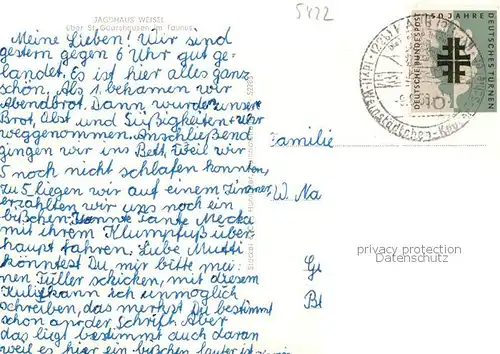 JAGDHAUS WEISEL
über St. Goarshausen im Taunus
5422
Meine Lieben! Wir sind
gestern gegen 6 Uhr gut ge-
landet. Es ist hier alles ganz
schön. Als 1. bekamen wir
Abendbrot. Dann wurden unsere
Brot, Obst und Süßigkeiten
weggenommen. Anschließend
gingen wir ins Bett, weil wir
5 noch nicht schlafen konnten,
zu 5 liegen wir auf einem Zimmer,
erzählten wir uns noch ein
bißchen. Konnte Tante Mecka
mit ihrem Klumpfuß über
haupt fahren. Liebe Mutti
könntest Du mir bitte mei
nen Füller schicken, mit diesem
Kuli kann ich unmöglich
schreiben, das merkst Du bestimmt
schon an der Schrift. Aber
das liegt bestimmt auch daran
weil es hier ein bißchen lauter ist
150 JAHRE
DEUTSCHES TURNEN
DEUTSCHE BUNDESPOST
10
Familie
W. Na
privacy protection
Datenschutz